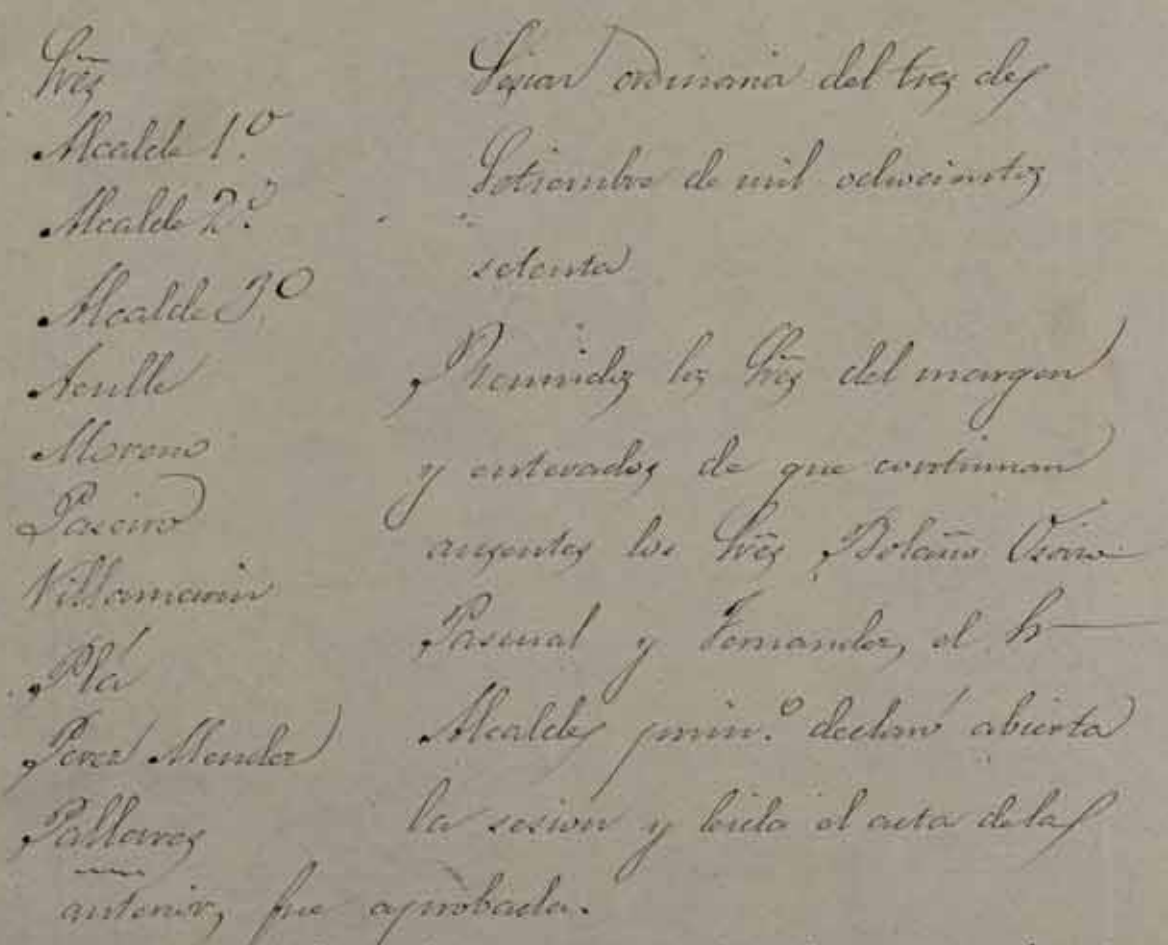 Sres
Alcalde 1.º
Alcalde 2.º
Alcalde 3.º
Moreno
Paseiro
Villamarin
Plá
Perez Mendez
Pallares
Sesion ordinaria del tres de
Setiembre de mil ochocientos
setenta
Reunidos los Sres del margen
y enterados de que continuan
ausentes los Sres Bolaño Osorio
Pascual y Fernandez, el Sr
Alcalde prim.º declaró abierta
la sesion y leida el acta de la
anterior, fue aprobada.